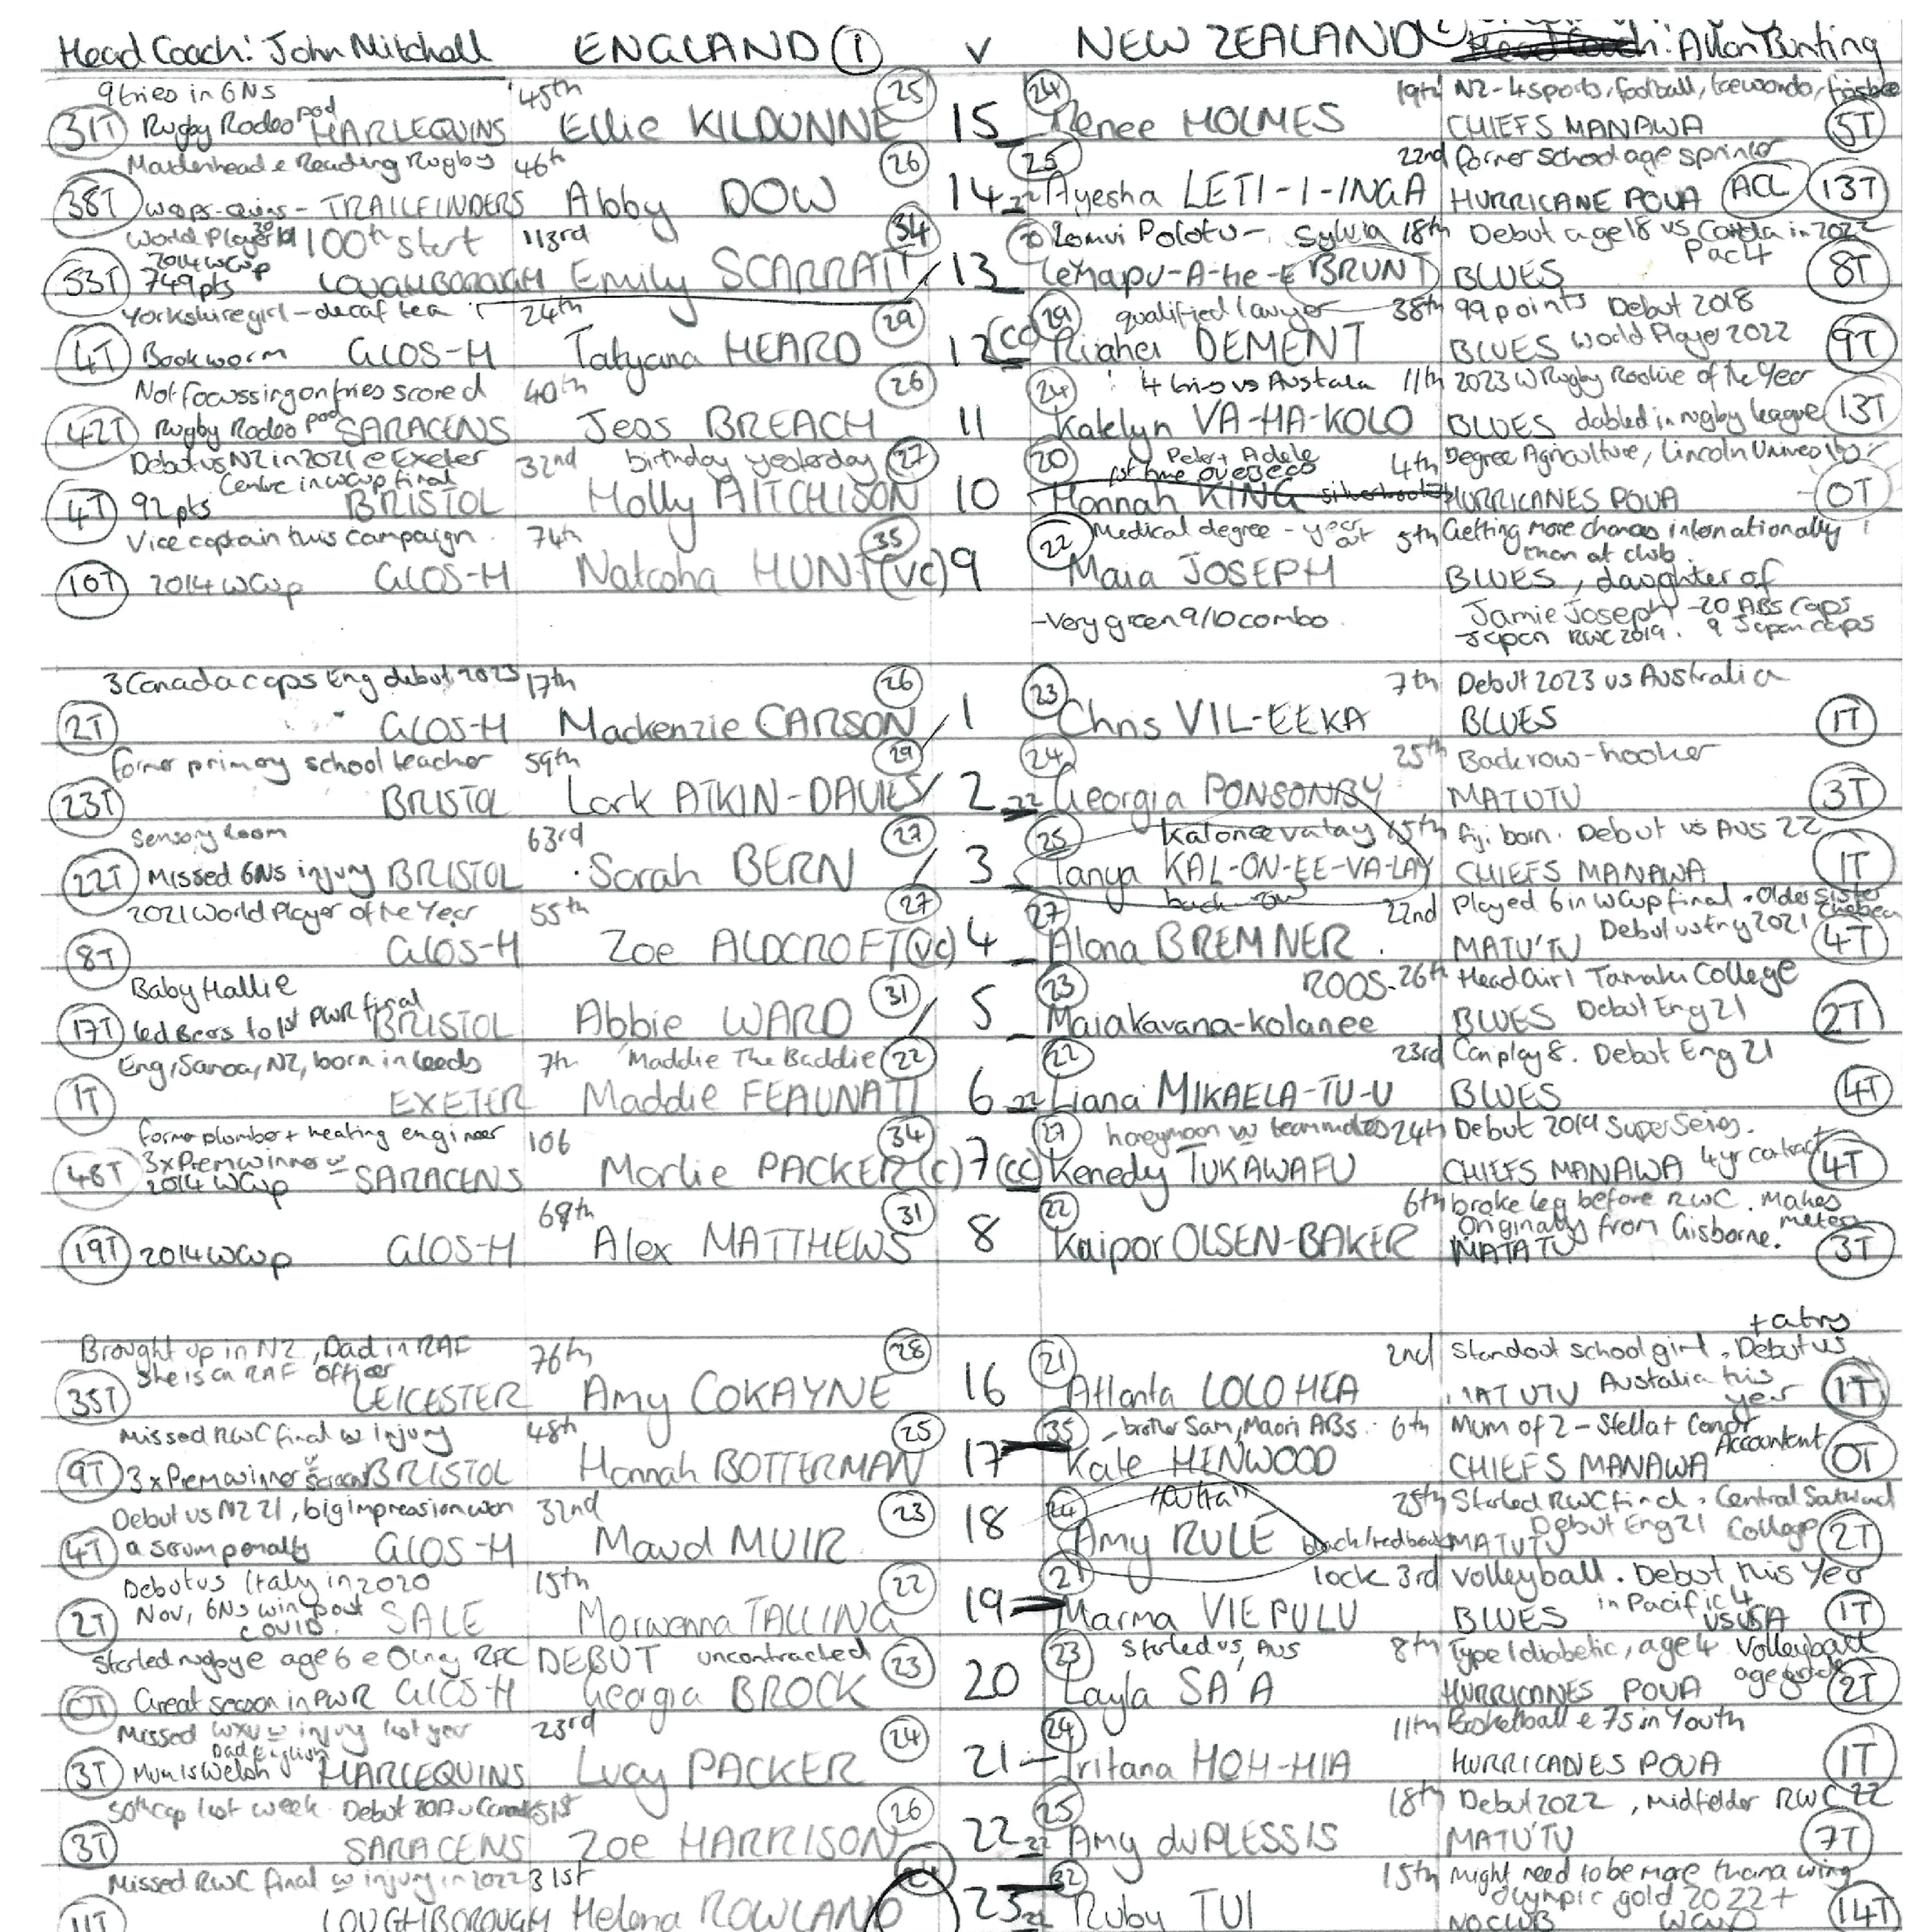 Head Coach: John Mitchell ENGLAND 1 v NEW ZEALAND : Allan Bunting
9 tries in 6Ns 45th 25 24 19th NZ - 4 sports, football, taewondo, frisbee
31T Rugby Rodeo pod HARLEQUINS Ellie KILDUNNE 15 Renee HOLMES CHIEFS MANAWA 5T
Maidenhead @ Reading Rugby 46th 26 25 22nd former school age sprinter
38T wasps-quins-TRAILFINDERS Abby DOW 14 22 Ayesha LETI-I-INGA HURRICANE POUA ACL 13T
World Player 19 100th start 113rd 34 Sylvia 18th Debut age 18 vs Canada in 2022
2014 WCup Pac 4
53T 749pts LOUGHBOROUGH Emily SCARRATT 13 BRUNT BLUES 8T
Yorkshire girl - decaf tea 24th 29 29 qualified lawyer 38th 99 points Debut 2018
4T Bookworm GLOS-H Tatyana HEARD 12 (cc) Ruahei DEMENT BLUES World Player 2022 9T
Not focussing on tries scored 40th 26 24 4 tries vs Austalia 11th 2023 W Rugby Rookie of the Year
42T Rugby Rodeo pod SARACENS Jess BREACH 11 Katelyn VA-HA-KOLO BLUES dabled in rugby league 13T
Debut vs NZ in 2021 @ Exeter 32nd birthday yesterday 27 20 Peter + Adele 4th Degree Agriculture, Lincoln University
Centre in WCup final 1st time overseas
4T 92pts BRISTOL Holly AITCHISON 10 Hannah KING HURRICANES POUA 0T
Vice captain this campaign. 74th 35 22 Medical degree - year out 5th Getting more chances internationally
than at club.
10T 2014 WCup GLOS-H Natasha HUNT (vc) 9 Maia JOSEPH BLUES, daughter of
-Very green 9/10 combo. Jamie Joseph - 20 ABs caps
Japan RWC 2019. 9 Japan caps
3 Canada caps Eng debut 2023 17th 26 23 7th Debut 2023 vs Australia
2T GLOS-H Mackenzie CARSON 1 Chris VIL-EEKA BLUES 1T
former primary school teacher 59th 29 24 25th Backrow-hooker
23T BRISTOL Lark ATKIN-DAVIES 2 22 Georgia PONSONBY MATUTU 3T
Sensory Room 63rd 27 25 15th Fiji born. Debut vs AUS 22
22T Missed 6Ns injury BRISTOL Sarah BERN 3 Tanya KAL-ON-EE-VA-LAY CHIEFS MANAWA 1T
2021 World Player of the Year 55th 27 27 22nd Played 6 in WCup final. Older sister Chelsea
8T GLOS-H Zoe ALDCROFT (vc) 4 Alana BREMNER MATU'TU 4T
Baby Hallie 31 23 ROOS- 26th Head Girl Tamaki College
17T led Bears to 1st PWR final BRISTOL Abbie WARD 5 Maiakavana-kolanee BLUES Debut Eng 21 2T
Eng, Samoa, NZ, born in Leeds 7th 'Maddie The Baddie 22 22 23rd Can play 8. Debut Eng 21
1T EXETER Maddie FEAUNATI 6 22 Liana MIKAELA-TU-U BLUES 4T
former plumber + heating engineer 106 34 27 honeymoon w teammates 24th Debut 2019 Super Series.
3x Prem winner
48T 2014 WCup SARACENS Marlie PACKER (c) 7 (cc) Kenedy TUKAWAFU CHIEFS MANAWA 4yr contract 4T
68th 31 22 6th broke leg before RWC. Makes metres
Originally from Gisborne.
19T 2014 WCup GLOS-H Alex MATTHEWS 8 Kaipor OLSEN-BAKER MATATU 3T
+ a try
Brought up in NZ, Dad in RAF 76th 28 21 2nd Standout school girl. Debut vs
she is a RAF officer
35T LEICESTER Amy COKAYNE 16 Atlanta LOLOHEA MATUTU Australia this year 1T
Missed RWC final w injury 48th 25 35 - brother Sam, Maori ABs. 6th Mum of 2 -
9T 3x Prem winner BRISTOL Hannah BOTTERMAN 17 Kate HENWOOD CHIEFS MANAWA Accountant 0T
Debut vs NZ 21, big impression won 32nd 23 24 25th Started RWC final.
4T a scrum penalty GLOS-H Maud MUIR 18 Amy RULE MATUTU Debut Eng 21 College 2T
Debut vs Italy in 2020 15th 22 21 lock 3rd Volleyball. Debut this Year
2T Nov, 6Ns win post COVID. SALE Morwenna TALLING 19 Marma VIEPULU BLUES in Pacific 4 vs USA 1T
Started rugby @ age 6 @ Olney RFC DEBUT uncontracted 23 23 Started vs AUS 8th Type 1 diabetic, age 4 Volleyball
0T Great season in PWR GLOS-H Georgia BROCK 20 Layla SA'A HURRICANES POUA 2T
Missed WXV w injury last year 23rd 24 24 11th Basketball @ 7s in Youth
Dad English
3T Mum is Welsh HARLEQUINS Lucy PACKER 21 Iritana HOH-HIA HURRICANES POUA 1T
50th cap last week. Debut 2017 v Canada 51st 26 25 18th Debut 2022, midfielder RWC 22
3T SARACENS Zoe HARRISON 22 22 Amy du PLESSIS MATU'TU 7T
Missed RWC final w injury in 2022 31st 32 15th might need to be more than a wing
Olympic gold 2022 +
11T LOUGHBOROUGH Helena ROWLAND 23 22 Ruby TUI NO CLUB WCUP 14T